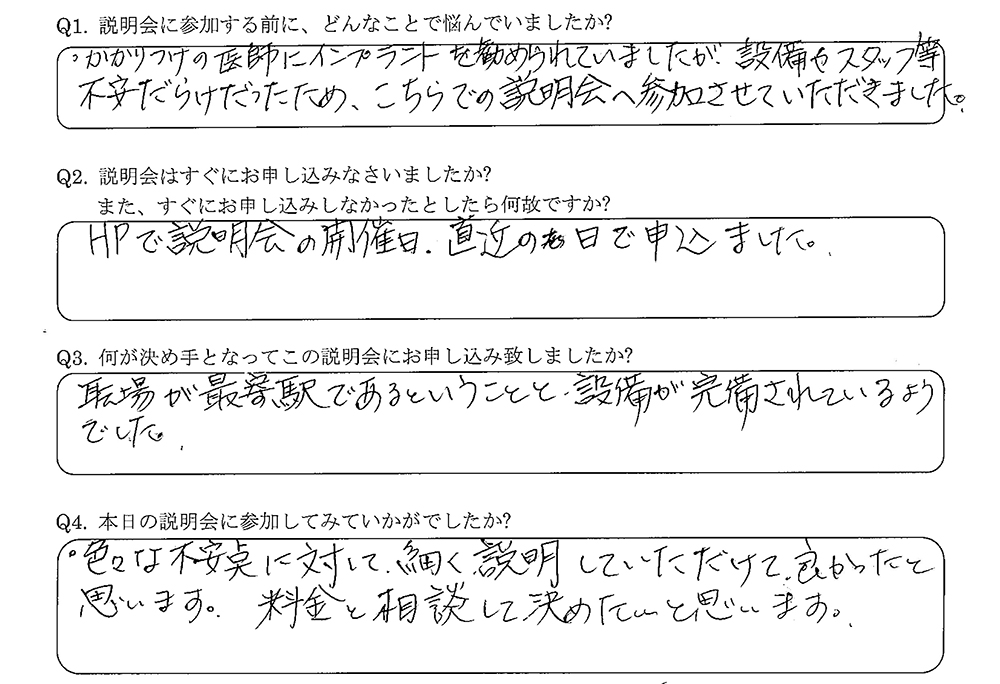 Q1. 説明会に参加する前に、どんなことで悩んでいましたか?
・かかりつけの医師にインプラントを勧められていましたが、設備やスタッフ等
不安だらけだったため、こちらでの説明会へ参加させていただきました。
Q2. 説明会はすぐにお申し込みなさいましたか?
また、すぐにお申し込みしなかったとしたら何故ですか?
HPで説明会の開催日、直近の日で申込ました。
Q3. 何が決め手となってこの説明会にお申し込み致しましたか?
職場が最寄駅であるということと、設備が完備されているよう
でした。
Q4. 本日の説明会に参加してみていかがでしたか?
・色々な不安点に対して、細く説明していただけて、良かったと
思います。料金と相談して、決めたいと思います。